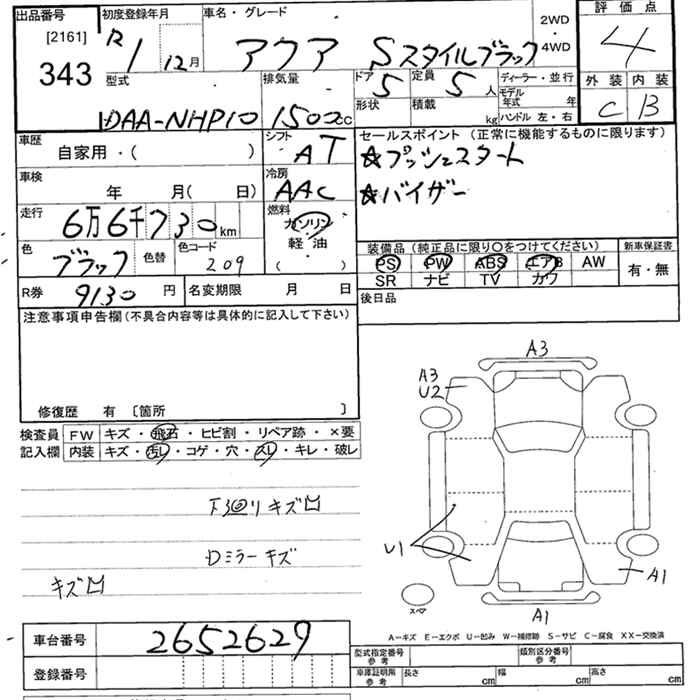 出品番号 [2161] 343
初度登録年月 R1 12月
車名・グレード アクア Sスタイルブラック
2WD・4WD
評価点 4
外装 C 内装 B
型式 DAA-NHP10
排気量 1500cc
ドア 5
定員 5人
形状
積載 kg
ディーラー・並行
モデル年式 年
ハンドル 左・右
車歴 自家用・( )
シフト AT
セールスポイント (正常に機能するものに限ります)
☆プッシュスタート
☆バイザー
車検 年 月( 日)
冷房 AAC
走行 6万6千730km
燃料 ガソリン・軽油 ( )
色 ブラック
色替
色コード 209
装備品(純正品に限り○をつけてください)
PS PW ABS エアB AW
SR ナビ TV カワ
新車保証書 有・無
R券 9130円
名変期限 月 日
後日品
注意事項申告欄(不具合内容等は具体的に記入して下さい)
修復歴 有 [箇所 ]
検査員 FW キズ・飛石・ヒビ割・リペア跡・×要
記入欄 内装 キズ・汚し・コゲ・穴・スレ・キレ・破レ
下回リ キズ凹
Dミラー キズ
キズ凹
A3
A3
U2
U1
A1
スペア
A1
A-キズ E-エクボ U-凹み W-補修跡 S-サビ C-腐食 XX-交換済
車台番号 2652629
登録番号
型式指定番号 参考
類別区分番号 参考
車庫証明所 参考 長さ cm 幅 cm 高さ cm